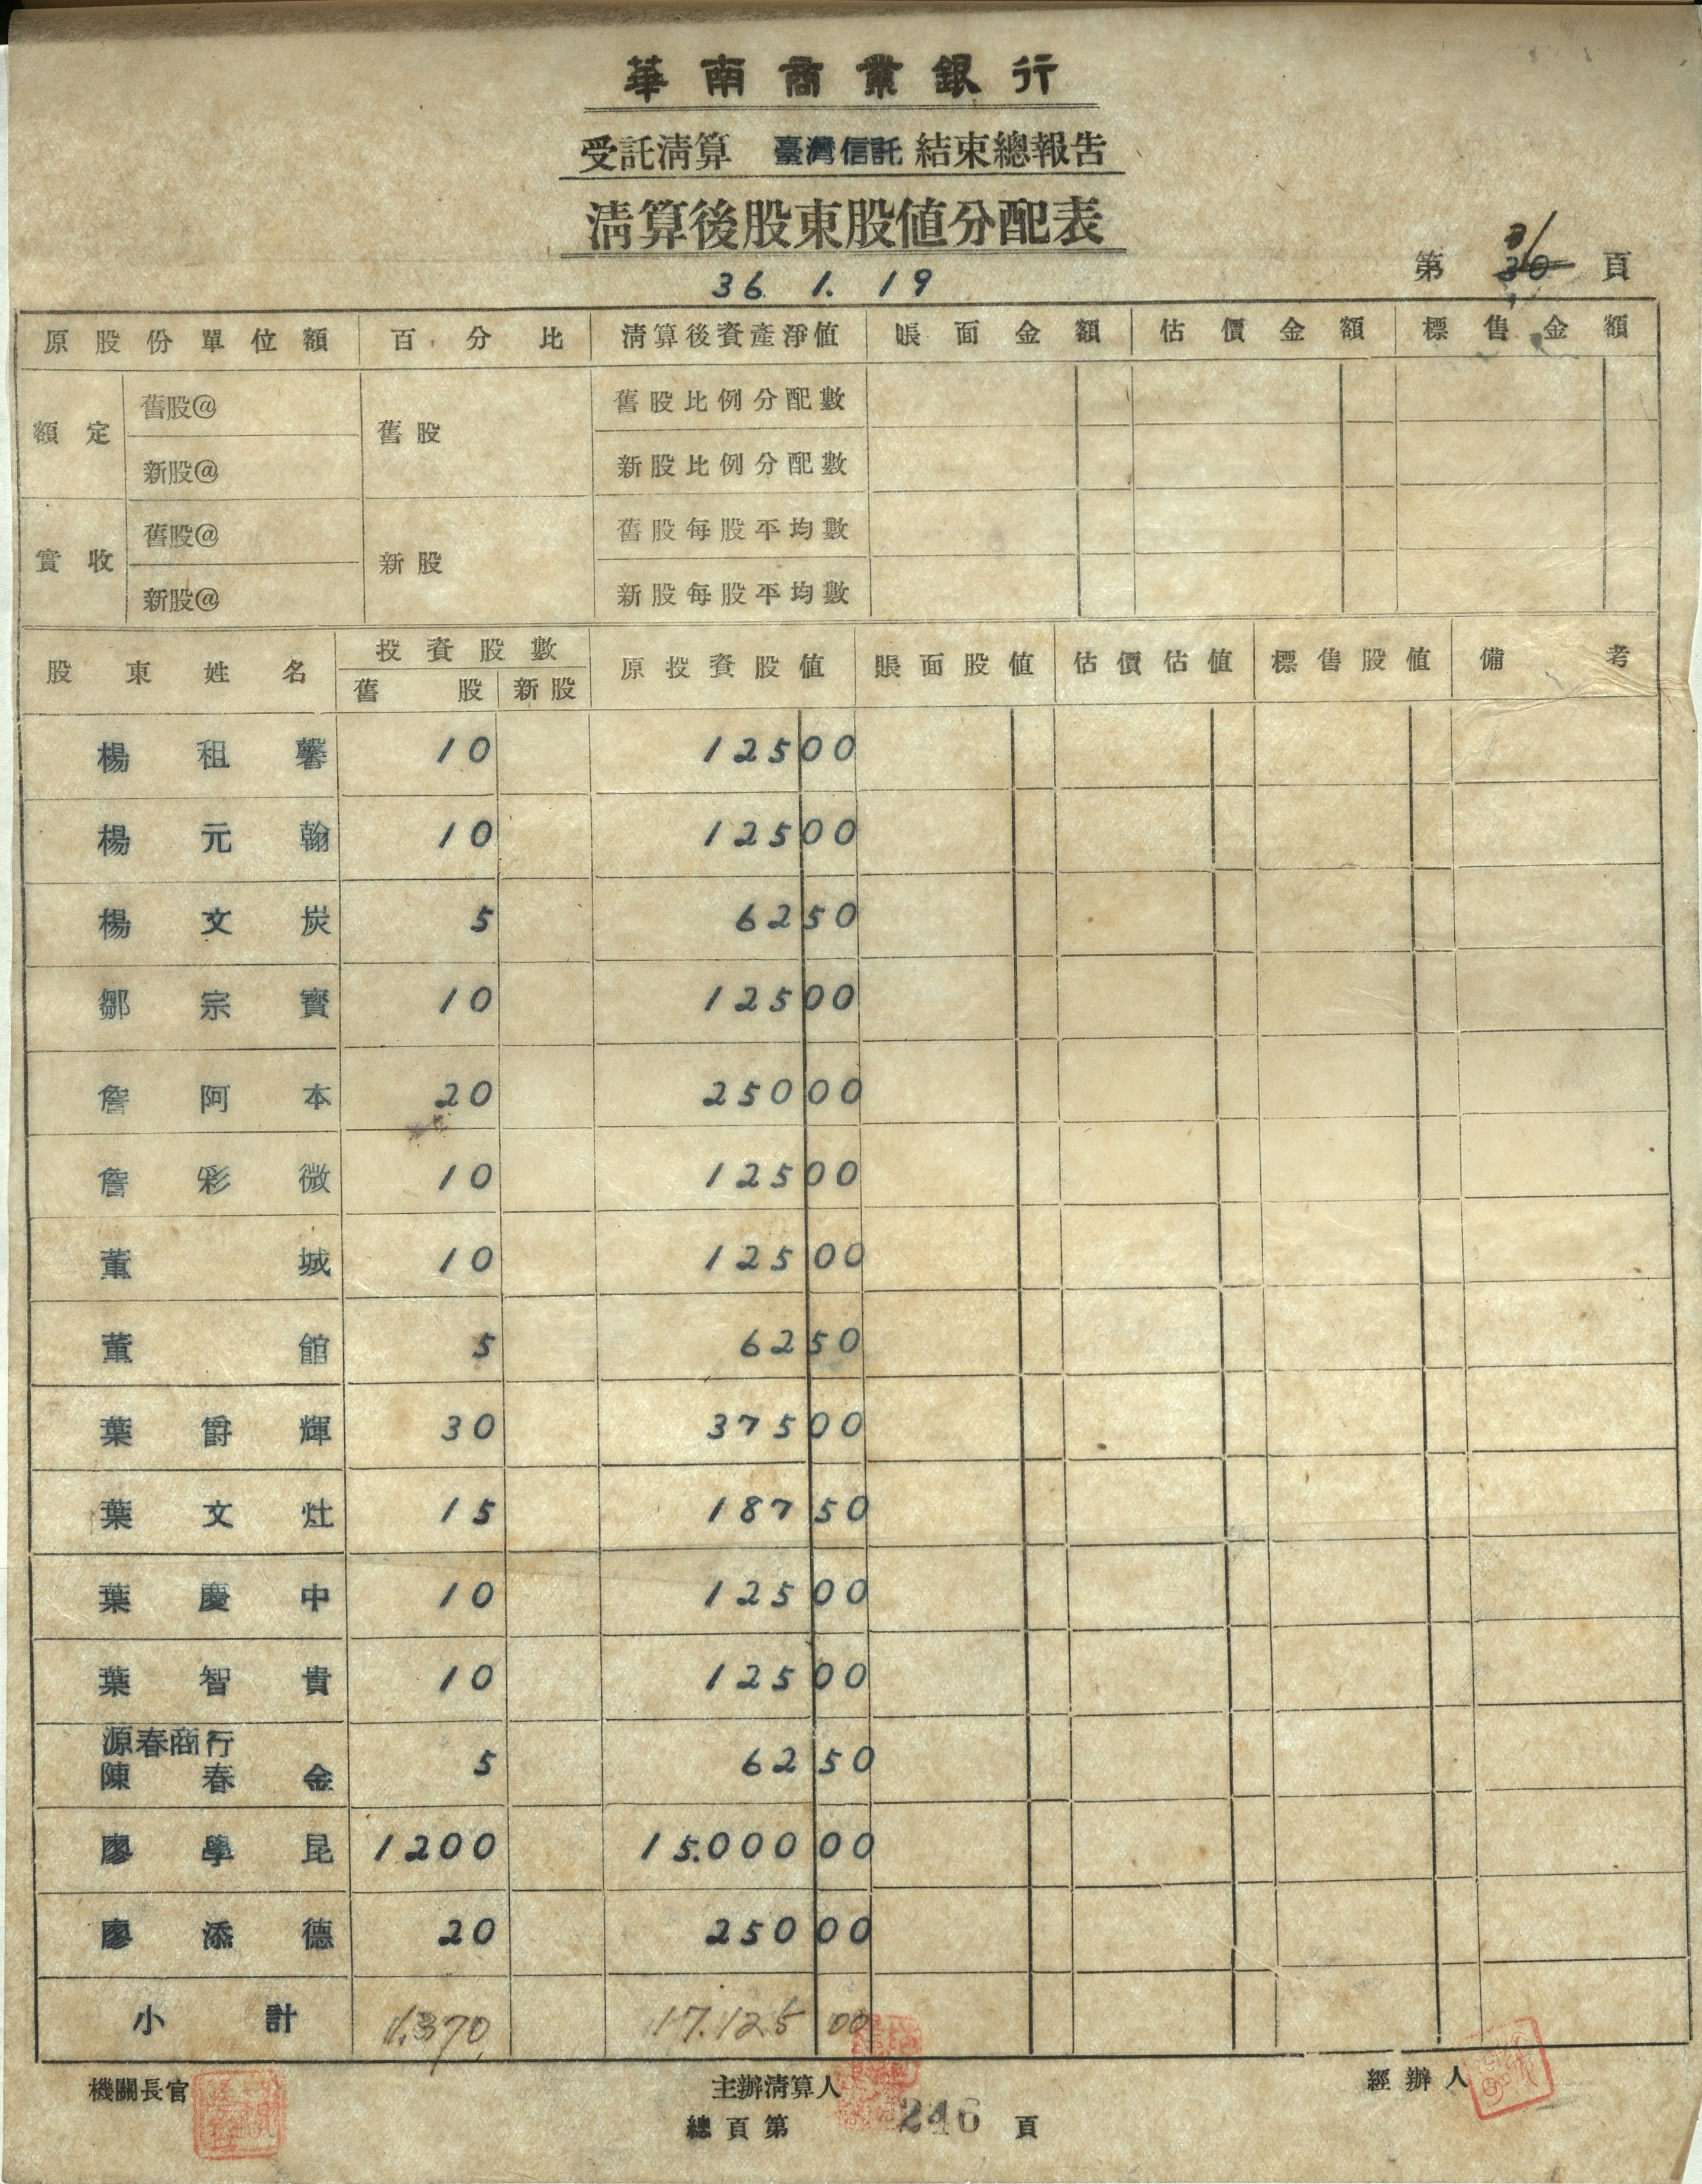 華南商業銀行
受託清算 臺灣信託 結束總報告
清算後股東股值分配表
36. 1. 19
第 30 31 頁
原股份單位額 百分比 清算後資產淨值 賬面金額 估價金額 標售金額
額定 舊股@ 舊股 舊股比例分配數
新股@ 新股比例分配數
實收 舊股@ 新股 舊股每股平均數
新股@ 新股每股平均數
股東姓名 投資股數 原投資股值 賬面股值 估價估值 標售股值 備考
舊股 新股
楊租馨 10 125 00
楊元翰 10 125 00
楊文炭 5 62 50
鄒宗寶 10 125 00
詹阿本 20 250 00
詹彩微 10 125 00
董城 10 125 00
董館 5 62 50
葉爵輝 30 375 00
葉文灶 15 187 50
葉慶中 10 125 00
葉智貴 10 125 00
源春商行
陳春金 5 62 50
廖學昆 1200 15.000 00
廖添德 20 250 00
小計 1.370 17.125 00
機關長官 主辦清算人 經辦人
總頁第 246 頁